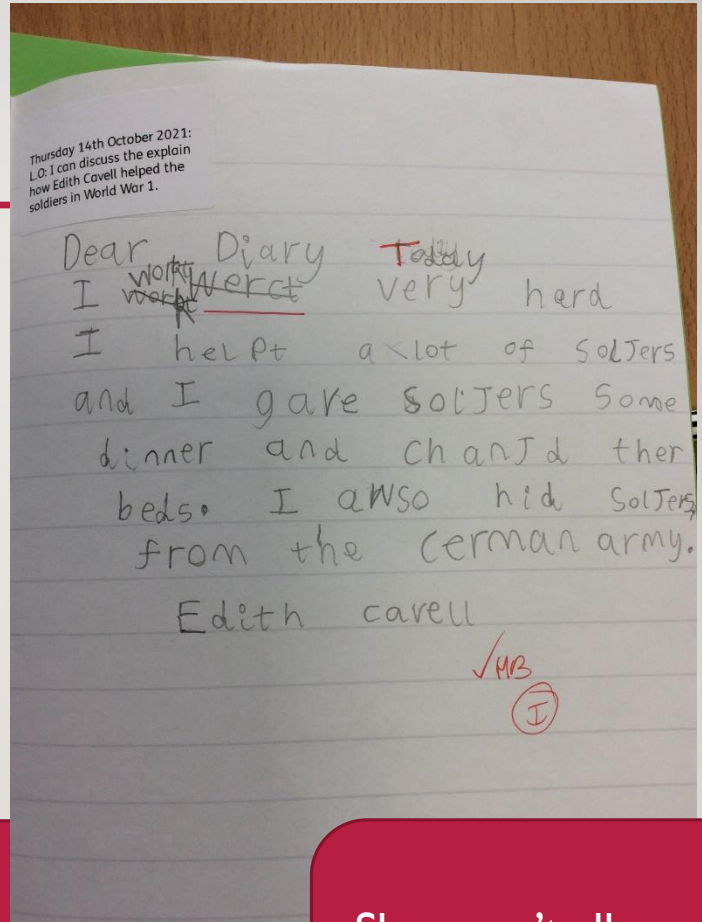 Thursday 14th October 2021:
L.O: I can discuss the explain
how Edith Cavell helped the
soldiers in World War 1.
Dear Diary Today
I werct very hard
I helpt a lot of solJers
and I gave solJers some
dinner and chanJd ther
beds. I awso hid SolJers
from the cerman army.
Edith cavell
✓MB
I